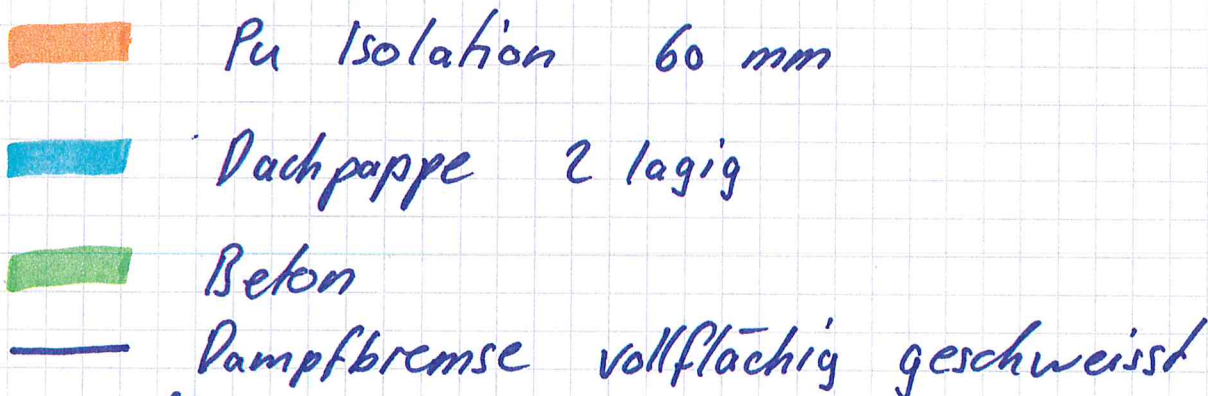 Pu Isolation 60 mm
Dachpappe 2 lagig
Beton
Dampfbremse vollflächig geschweisst